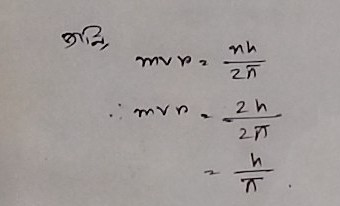 জানি,
mvr = nh/2π
∴ mvr = 2h/2π
= h/π.